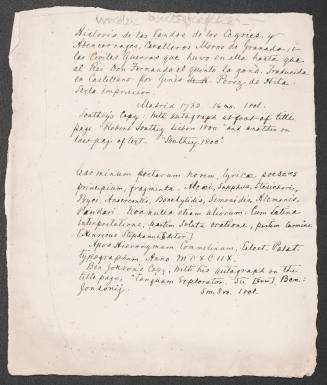 Historia de los Vandos de los Cegries, y
Abencerrages, Cavalleros Moros de Granada, i
las Civiles Guerras que huvo en ella hasta que
el Rei Don Fernando el quinto la gano. Traducida
en Castellano por Ginés de Perez de Hita.
Sexta impresion.
Madrid 1783. 16mo. 1 vol.
Southey's Copy, with autograph at foot of title
page "Robert Southey Lisbon 1800" and another on
last page of text. "Southey 1800"
Carminum poetarum novem, lyricæ poeseωs
principium, fragmenta. Alcæi, Sapphus, Stesichori,
Ibyci, Anacreontis, Bacchylidis, Simonidis, Alcmanis,
Pindari. Non nulla etiam aliorum. Cum latina
interpretatione, partim soluta oratione, partim carmine
[Henricus Stephanus Editor.]
Apud Hieronymum Commelinum, Elect. Palat.
typographum. Anno MDXCIIX.
Ben Jonson's Copy, with his autograph on the
title page, "Tanquam Explorator. Su Ben:
Jonsonij. Sm. 8vo. 1 vol.